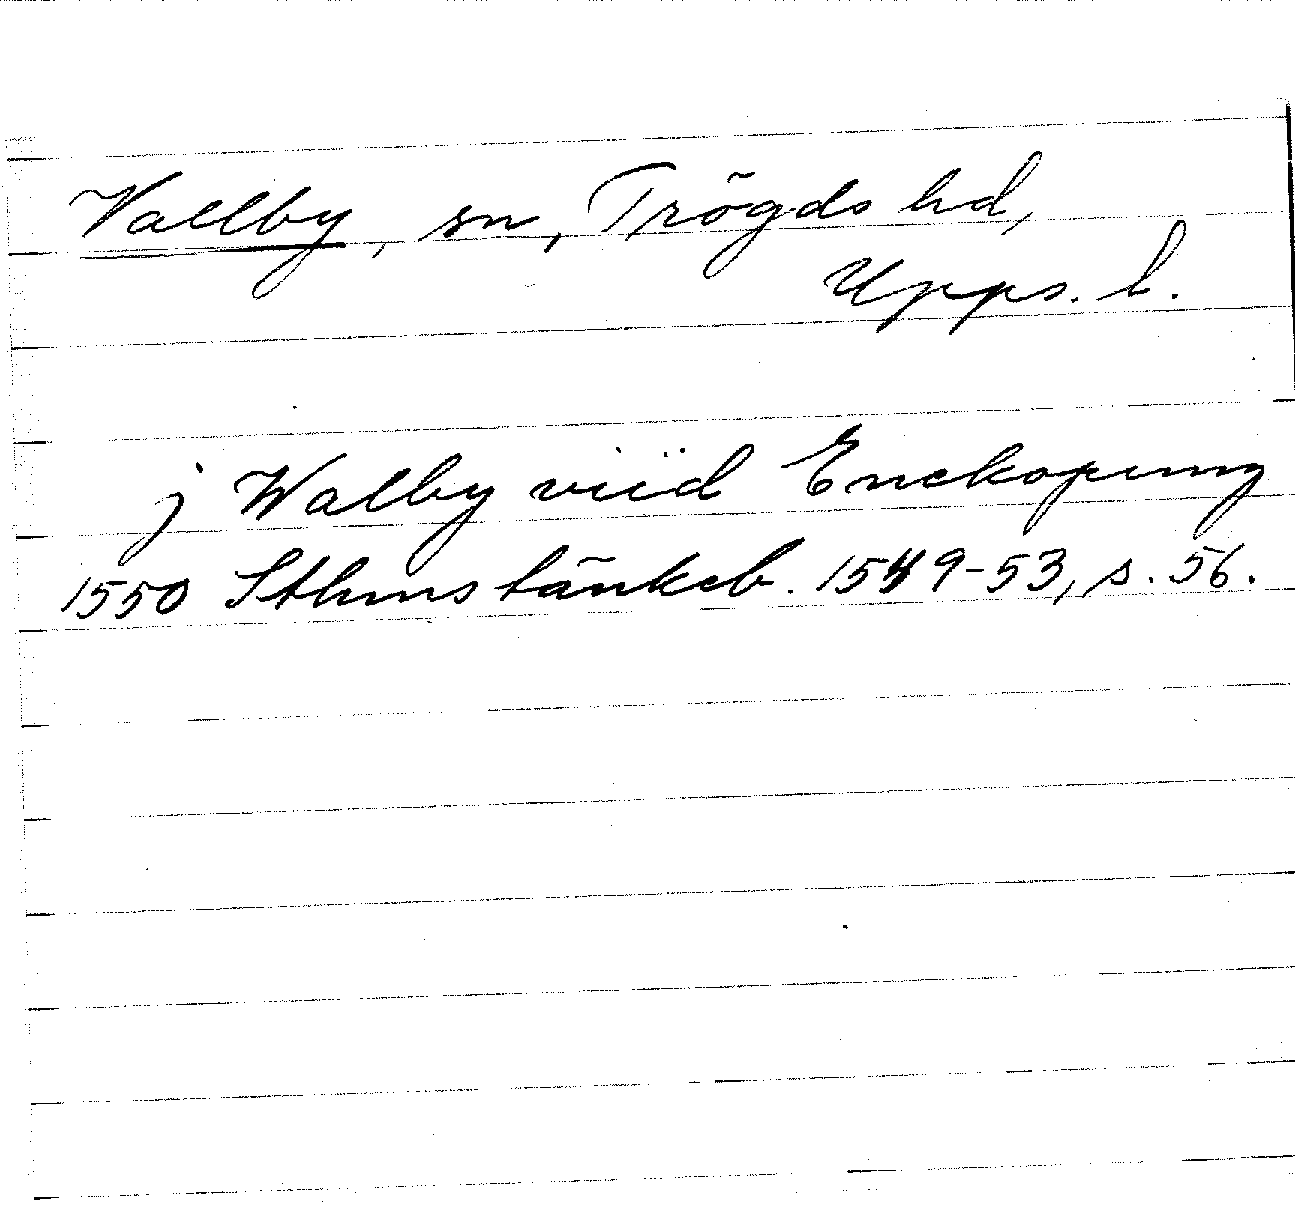 Vallby, sn, Trögds hd,
Upps. l.
j Walby viid Enckopung
1550 Sthms tänkeb. 1549-53, s. 56.